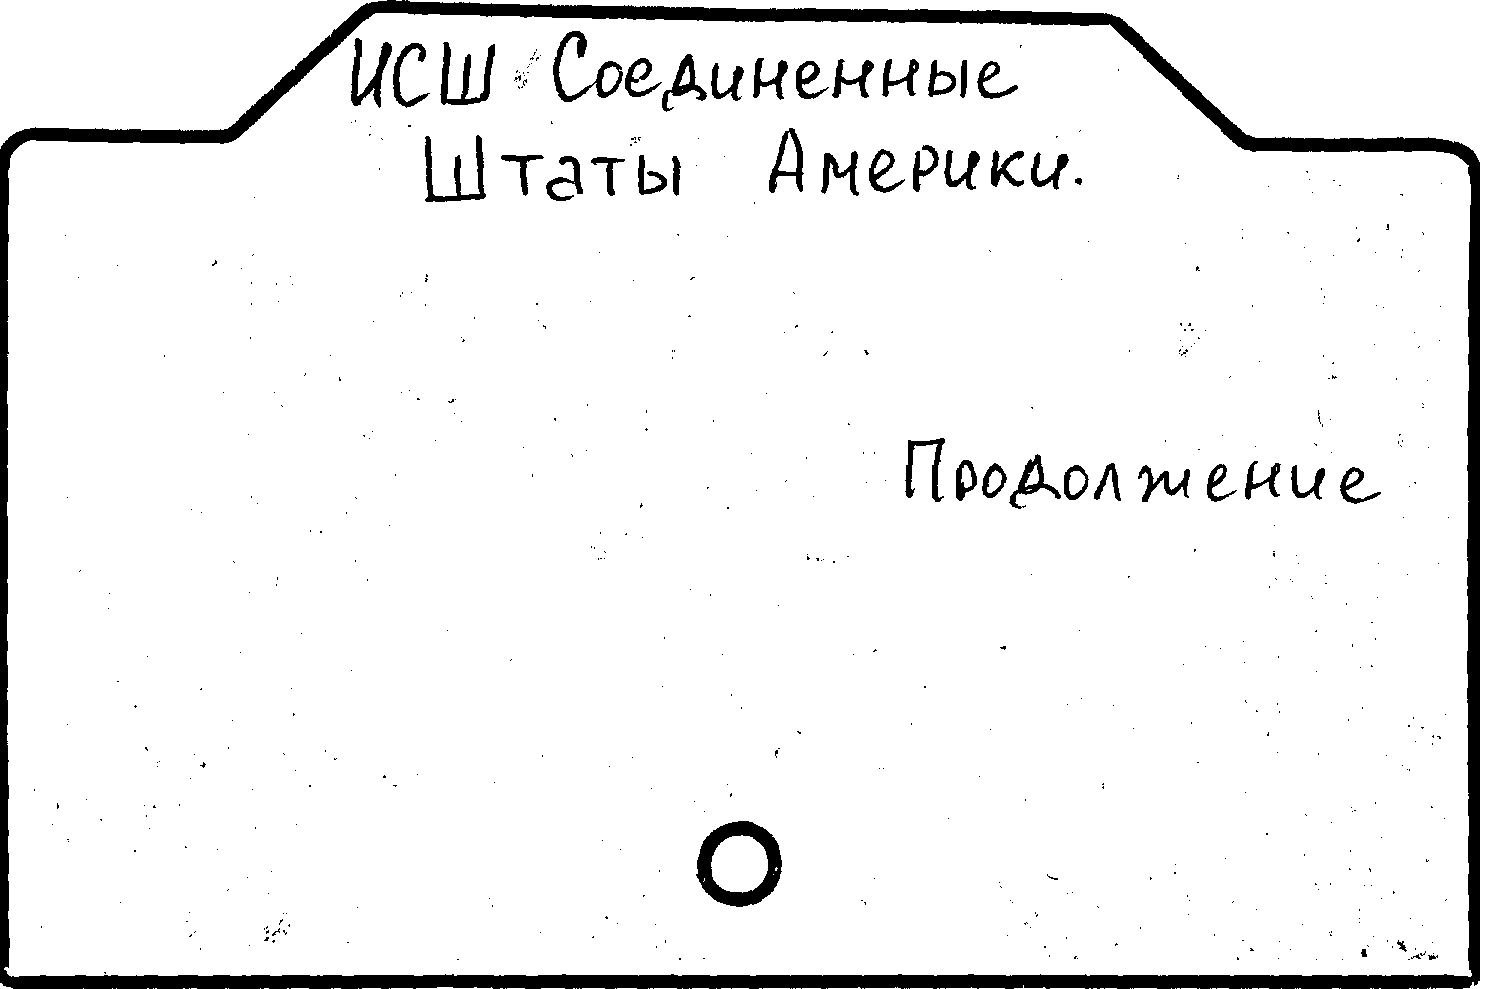 ИСШ Соединенные
Штаты Америки.
Продолжение